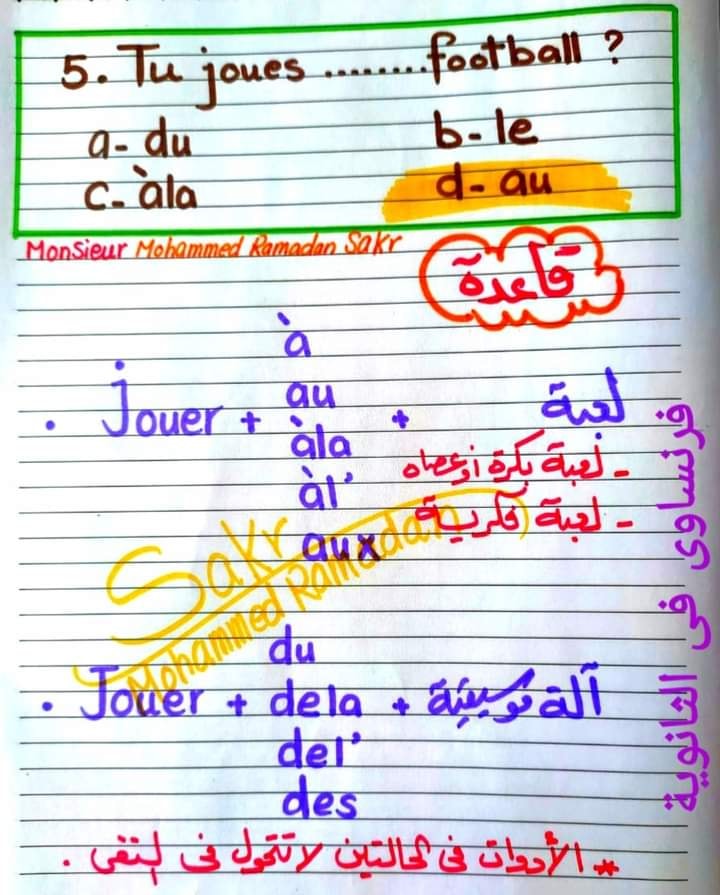 5. Tu joues ........ football ?
a- du
b- le
c- àla
d- au
Monsieur Mohammed Ramadan Sakr
قاعدة
à
au
. Jouer + àla + لعبة
àl'
aux
- لعبة بكرة أو عصاه
- لعبة فكرية
Sakr
Mohammed Ramadan
du
. Jouer + dela + آلة موسيقية
del'
des
* الأدوات فى الحالتين لا تتحول فى النفى .
فرنساوى فى الثانوية